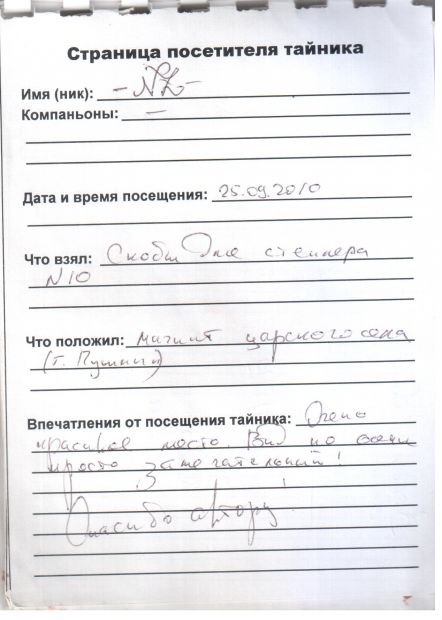 Страница посетителя тайника
Имя (ник): -NZ-
Компаньоны: —
Дата и время посещения: 25.09.2010
Что взял: Скобы для степлера
N10
Что положил: магнит царского села
(г. Пушкин)
Впечатления от посещения тайника: Очень
красивое место. Вид
просто замечательный!
Спасибо автору!